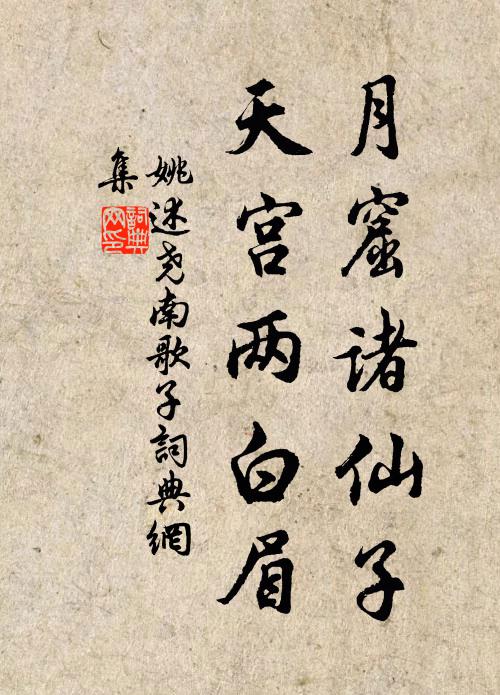 月窟諸仙子
天宫两白眉
姚述尧南歌子詞典網
集
詞典网印